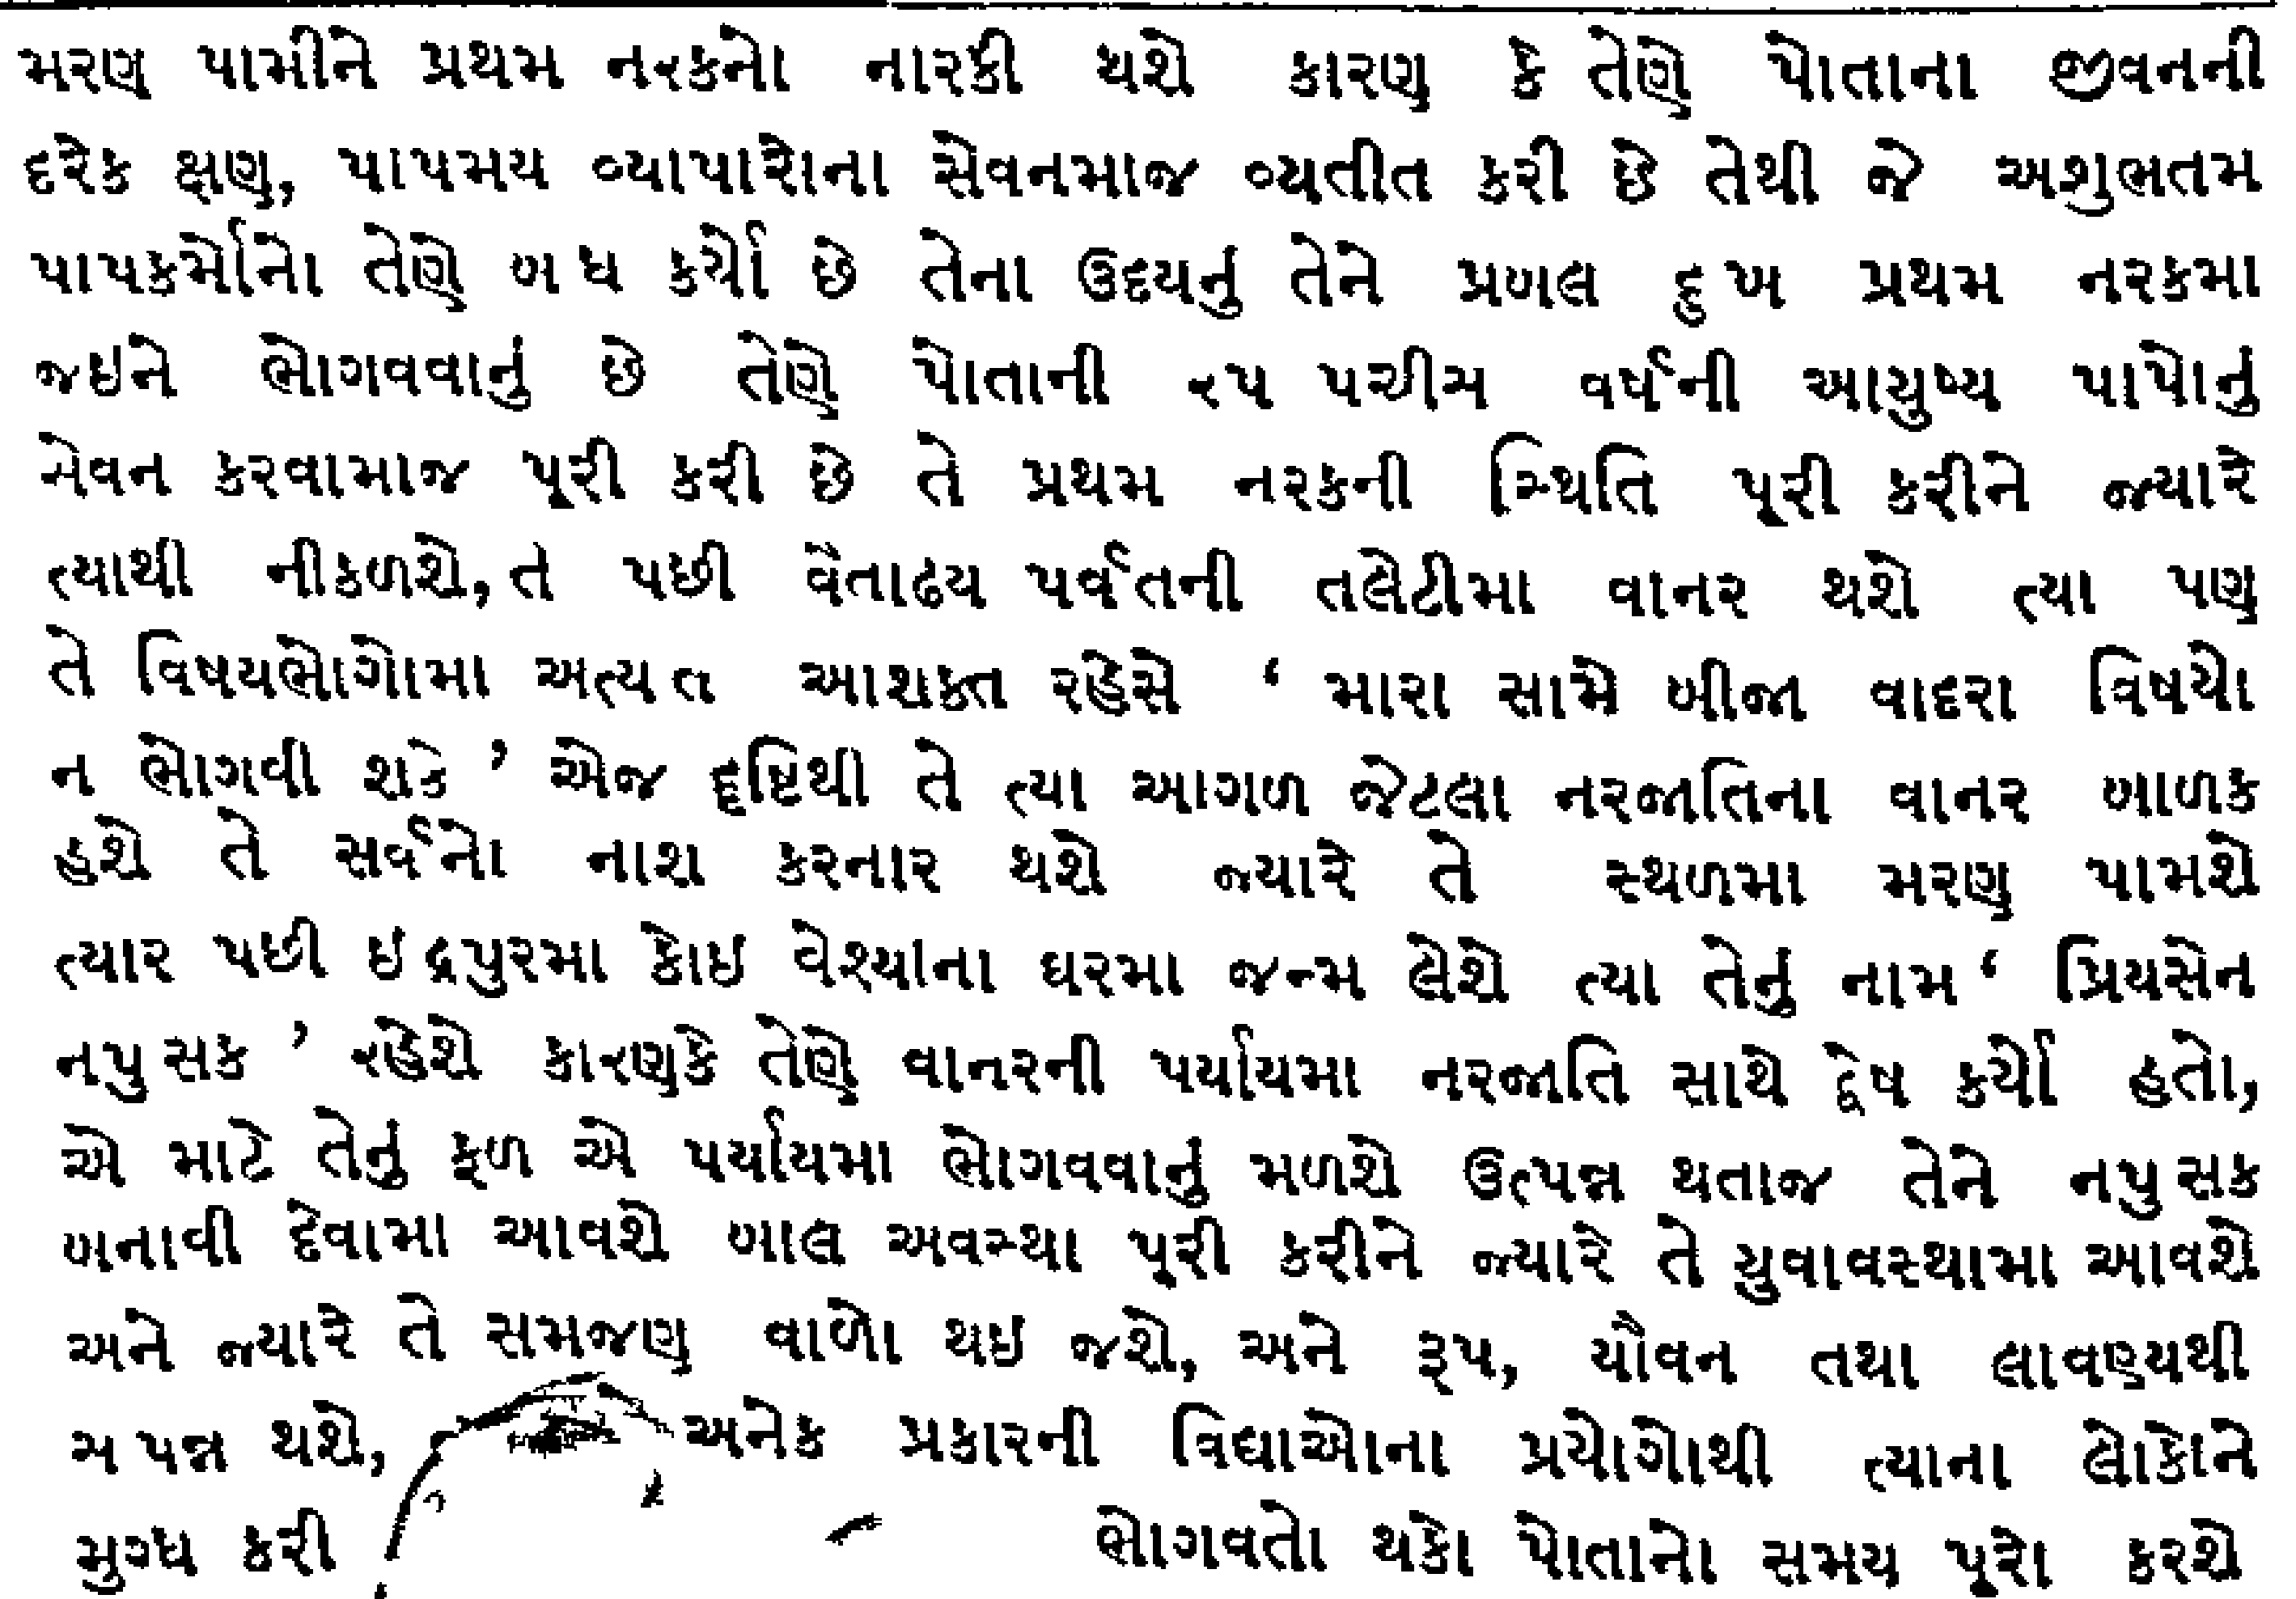 મરણ પામીને પ્રથમ નરકનો નારકી થશે કારણ કે તેણે પોતાના જીવનની
દરેક ક્ષણ, પાપમય વ્યાપારોના સેવનમાજ વ્યતીત કરી છે તેથી જે અશુભતમ
પાપકર્મોનો તેણે બ ધ કર્યો છે તેના ઉદયનું તેને પ્રબલ દુ ખ પ્રથમ નરકમા
જઇને ભોગવવાનું છે તેણે પોતાની ૨૫ પચીસ વર્ષની આયુષ્ય પાપોનું
સેવન કરવામાજ પૂરી કરી છે તે પ્રથમ નરકની સ્થિતિ પૂરી કરીને જ્યારે
ત્યાથી નીકળશે, તે પછી વૈતાઢય પર્વતની તલેટીમા વાનર થશે ત્યા પણ
તે વિષયભોગોમા અત્ય ત આશક્ત રહેસે ‘ મારા સામે બીજા વાદરા વિષયો
ન ભોગવી શકે ’ એજ દૃષ્ટિથી તે ત્યા આગળ જેટલા નરજાતિના વાનર બાળક
હશે તે સર્વનો નાશ કરનાર થશે જ્યારે તે સ્થળમા મરણ પામશે
ત્યાર પછી ઇદ્રપુરમા કોઇ વેશ્યાના ઘરમા જન્મ લેશે ત્યા તેનું નામ ‘ પ્રિયસેન
નપુ સક ’ રહેશે કારણકે તેણે વાનરની પર્યાયમા નરજાતિ સાથે દ્વેષ કર્યો હતો,
એ માટે તેનું ફળ એ પર્યાયમા ભોગવવાનું મળશે ઉત્પન્ન થતાજ તેને નપુ સક
બનાવી દેવામા આવશે બાલ અવસ્થા પૂરી કરીને જ્યારે તે યુવાવસ્થામા આવશે
અને જ્યારે તે સમજણ વાળો થઇ જશે, અને રૂપ, યૌવન તથા લાવણ્યથી
સ પન્ન થશે, અનેક પ્રકારની વિદ્યાઓના પ્રયોગોથી ત્યાના લોકોને
મુગ્ધ કરી ભોગવતો થકો પોતાનો સમય પૂરો કરશે